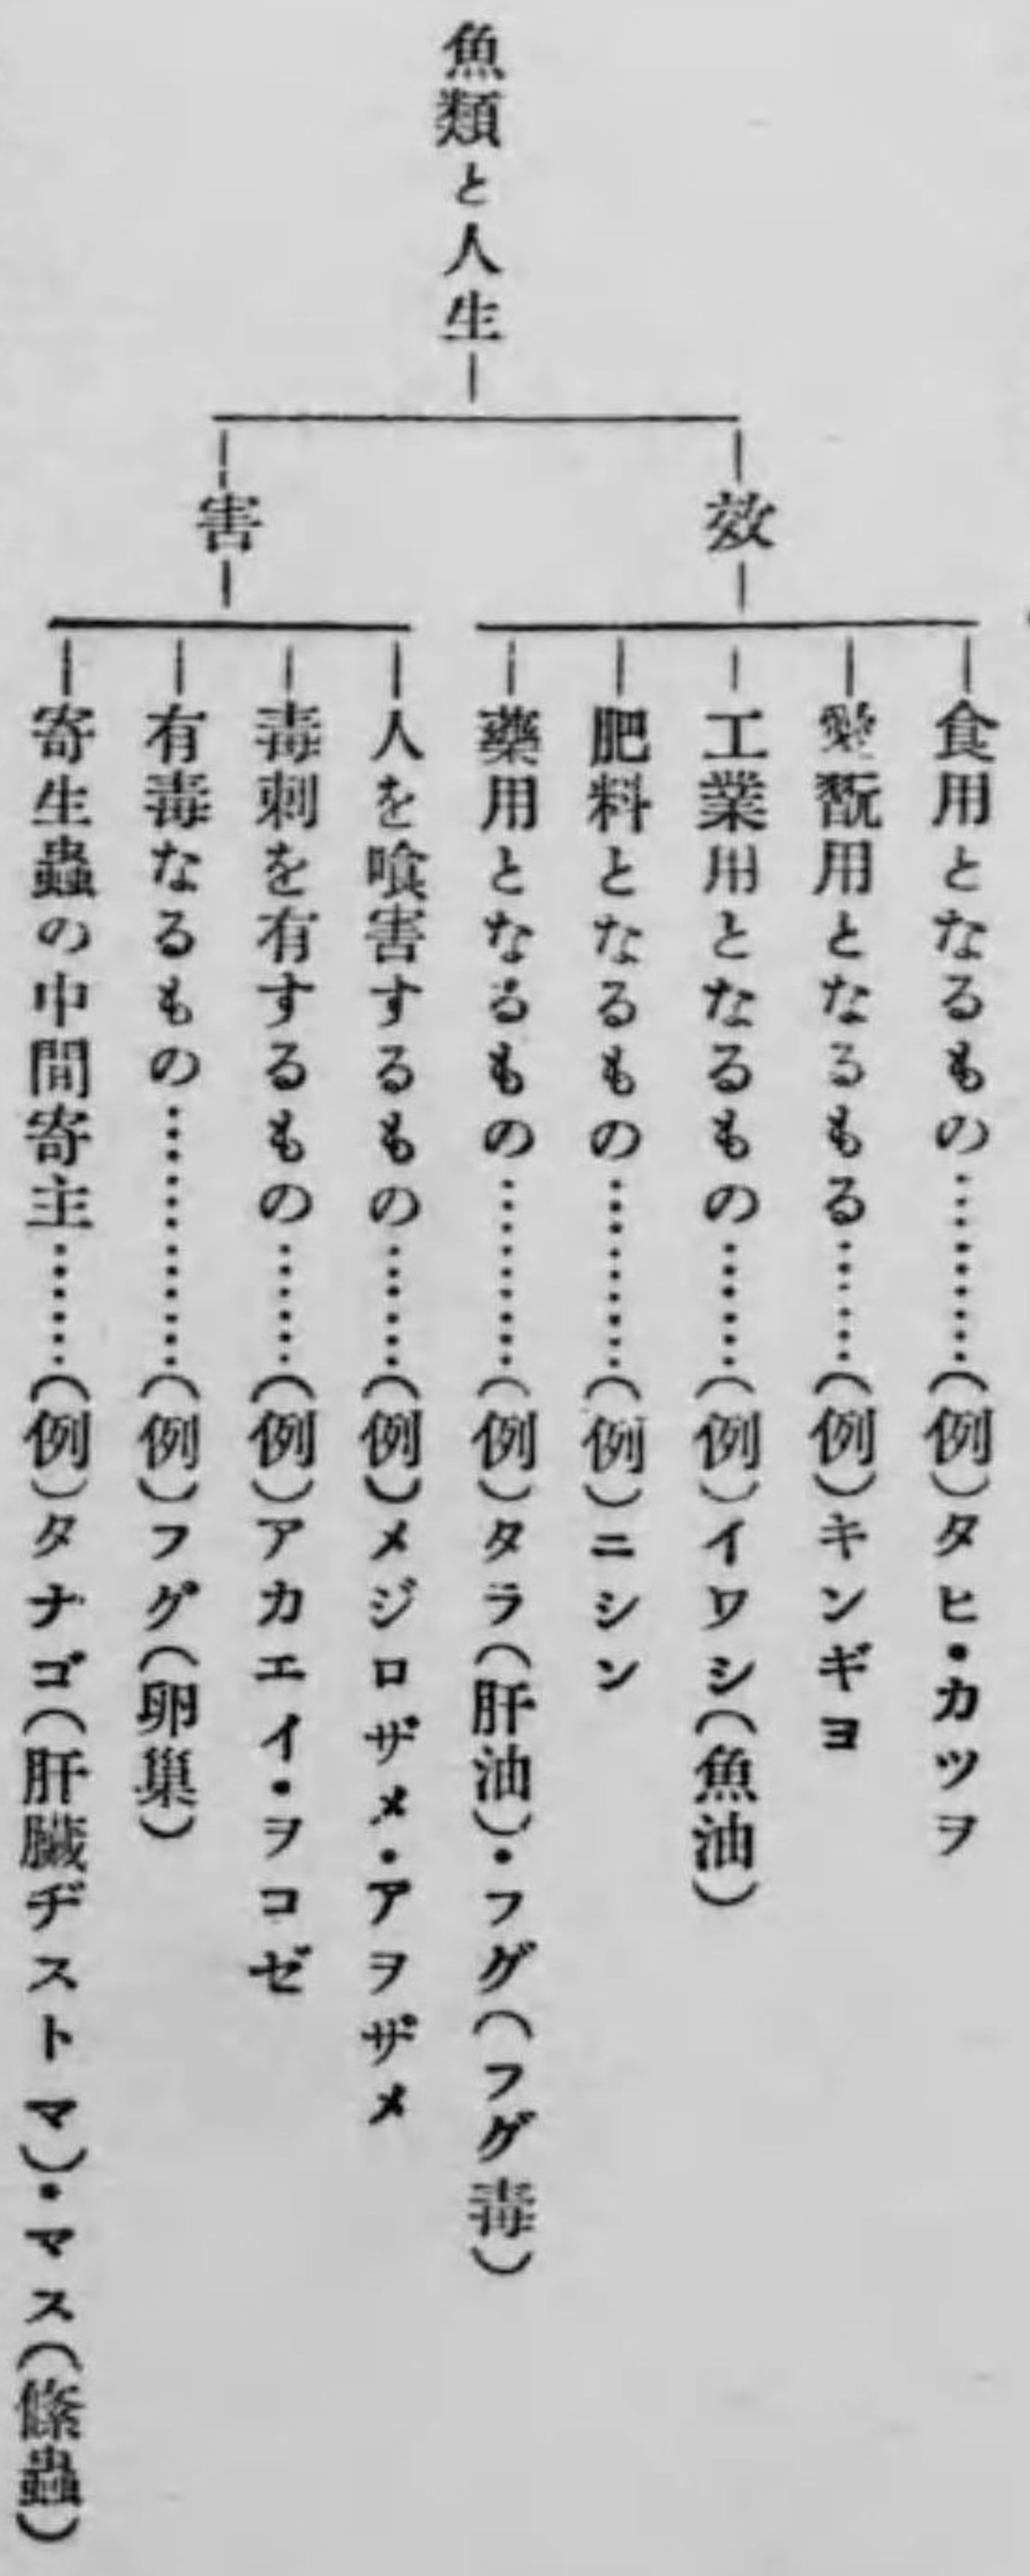 魚類と人生
效
食用となるもの…………(例)タヒ・カツヲ
愛翫用となるもる………(例)キンギヨ
工業用となるもの………(例)イワシ(魚油)
肥料となるもの…………(例)ニシン
藥用となるもの…………(例)タラ(肝油)・フグ(フグ毒)
害
人を喰害するもの………(例)メジロザメ・アヲザメ
毒刺を有するもの………(例)アカエイ・ヲコゼ
有毒なるもの……………(例)フグ(卵巢)
寄生蟲の中間寄主………(例)タナゴ(肝臟ヂストマ)・マス(絛蟲)